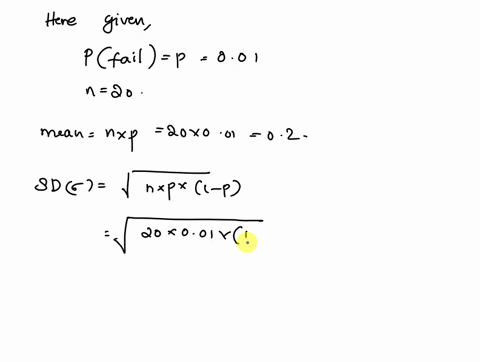 Here given,
P(fail) = p = 0.01
n = 20.
mean = n×p = 20×0.01 = 0.2.
SD(σ) = √n×p×(1-p)
= √20×0.01×(1